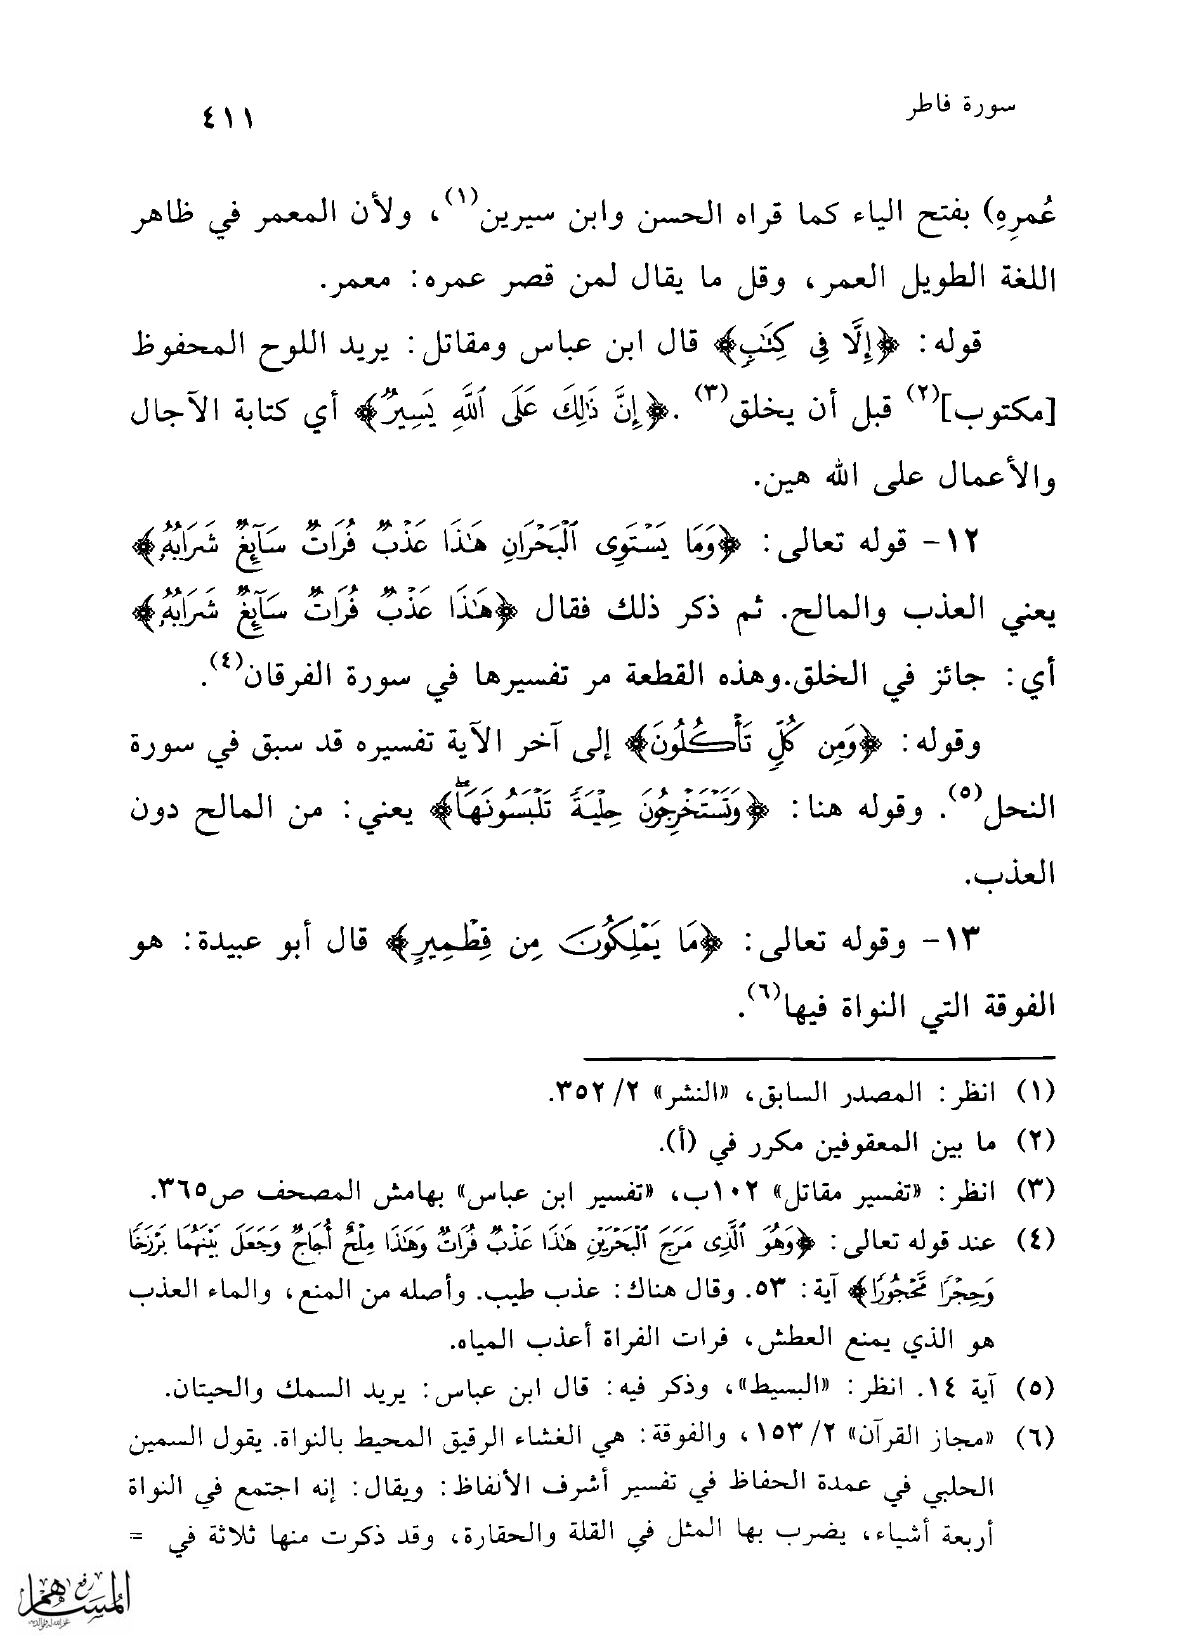 سورة فاطر
٤١١
عُمرِهِ) بفتح الياء كما قراه الحسن وابن سيرين(١)، ولأن المعمر في ظاهر
اللغة الطويل العمر، وقل ما يقال لمن قصر عمره: معمر.
قوله: ﴿إِلَّا فِى كِتَٰبٍ﴾ قال ابن عباس ومقاتل: يريد اللوح المحفوظ
[مكتوب](٢) قبل أن يخلق(٣) .﴿إِنَّ ذَٰلِكَ عَلَى ٱللَّهِ يَسِيرٌ﴾ أي كتابة الآجال
والأعمال على الله هين.
١٢- قوله تعالى: ﴿وَمَا يَسْتَوِى ٱلْبَحْرَانِ هَٰذَا عَذْبٌ فُرَاتٌ سَآئِغٌ شَرَابُهُۥ﴾
يعني العذب والمالح. ثم ذكر ذلك فقال ﴿هَٰذَا عَذْبٌ فُرَاتٌ سَآئِغٌ شَرَابُهُۥ﴾
أي: جائز في الخلق.وهذه القطعة مر تفسيرها في سورة الفرقان(٤).
وقوله: ﴿وَمِن كُلٍّ تَأْكُلُونَ﴾ إلى آخر الآية تفسيره قد سبق في سورة
النحل(٥). وقوله هنا: ﴿وَتَسْتَخْرِجُونَ حِلْيَةً تَلْبَسُونَهَاۖ﴾ يعني: من المالح دون
العذب.
١٣- وقوله تعالى: ﴿مَا يَمْلِكُونَ مِن قِطْمِيرٍ﴾ قال أبو عبيدة: هو
الفوقة التي النواة فيها(٦).
(١) انظر: المصدر السابق، «النشر» ٢/ ٣٥٢.
(٢) ما بين المعقوفين مكرر في (أ).
(٣) انظر: «تفسير مقاتل» ١٠٢ب، «تفسير ابن عباس» بهامش المصحف ص٣٦٥.
(٤) عند قوله تعالى: ﴿وَهُوَ ٱلَّذِى مَرَجَ ٱلْبَحْرَيْنِ هَٰذَا عَذْبٌ فُرَاتٌ وَهَٰذَا مِلْحٌ أُجَاجٌ وَجَعَلَ بَيْنَهُمَا بَرْزَخًا
وَحِجْرًا مَّحْجُورًا﴾ آية: ٥٣. وقال هناك: عذب طيب. وأصله من المنع، والماء العذب
هو الذي يمنع العطش، فرات الفراة أعذب المياه.
(٥) آية ١٤. انظر: «البسيط»، وذكر فيه: قال ابن عباس: يريد السمك والحيتان.
(٦) «مجاز القرآن» ٢/ ١٥٣، والفوقة: هي الغشاء الرقيق المحيط بالنواة. يقول السمين
الحلبي في عمدة الحفاظ في تفسير أشرف الألفاظ: ويقال: إنه اجتمع في النواة
أربعة أشياء، يضرب بها المثل في القلة والحقارة، وقد ذكرت منها ثلاثة في =